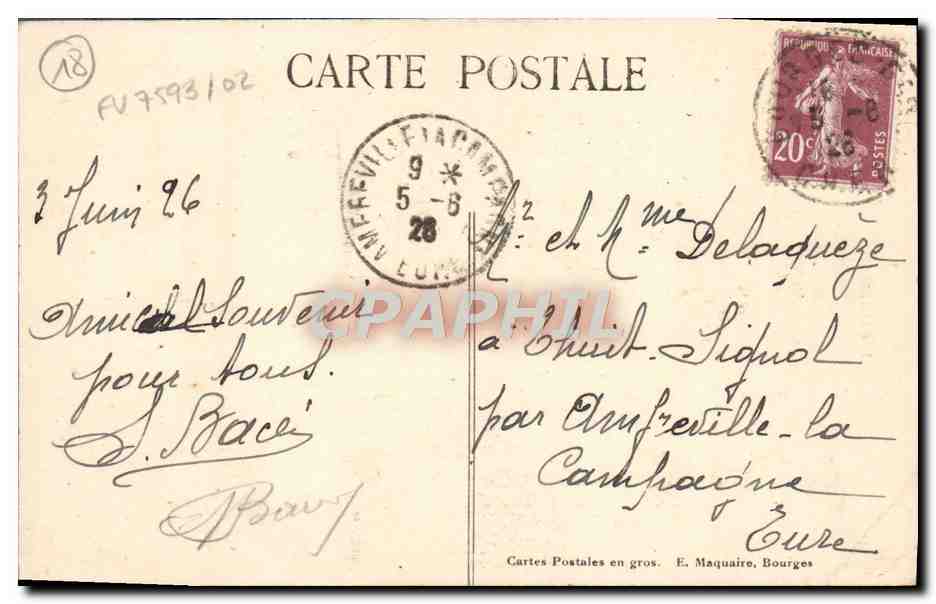 18
FV7593/02
CARTE POSTALE
REPUBLIQUE FRANÇAISE
20c
POSTES
AMFREVILLE LA CAMPAGNE
9 *
5 -6
26
EURE
5 -6
26
3 Juin 26
Amical Souvenir
pour tous.
Mr et Mme Delaquèze
à Thuit-Signol
par Amfreville-la
Campagne
Eure
CPAPHIL
Cartes Postales en gros. E. Maquaire, Bourges